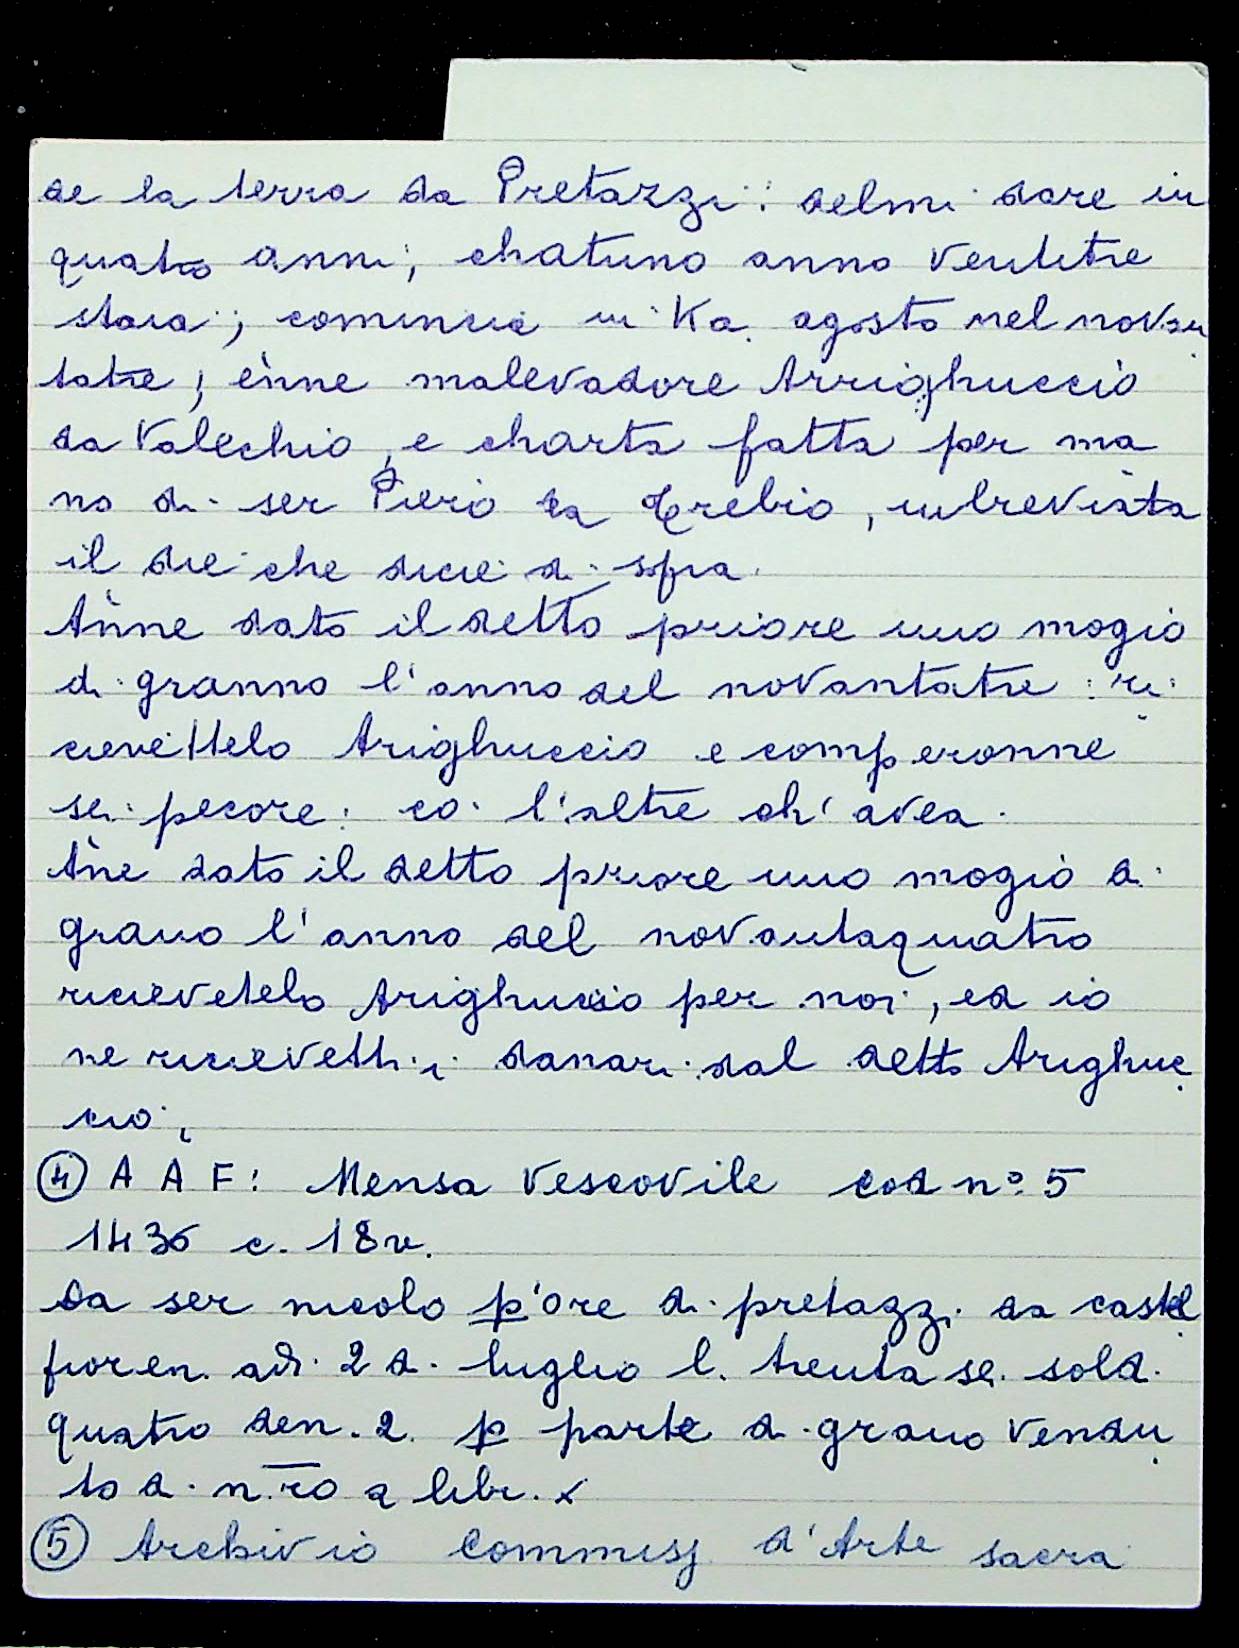 de la terra da Pretazzi: delmi dare in
quatro anni, chatuno anno ventitre
staia; comincia in Ka. agosto nel novan
tatre; ènne malevadore Arrighuccio
da Valechio, e charta fatta per ma
no di ser Piero da Trebio, inbreviata
il die che dicie di sopra.
Ànne dato il detto priore uno mogio
di granno l'anno del novantatre: ri
cievettelo Arighuccio e comperonne
sei pecore: co l'altre ch'avea.
Àne dato il detto priore uno mogio di
grano l'anno del novantaquatro
ricievetelo Arighuccio per noi, ed io
ne ricievetti i danari dal detto Arighuc
cio.
④ A A F: Mensa Vescovile cod nº 5
1436 c. 18v.
Da ser nicolo p'ore di pretazzi da castel
fioren. adì 2 di luglio l. trenta sei sold.
quatro den. 2. p parte di grano vendu
to di n.ro a libr. x
⑤ Archivio Commiss d'Arte sacra